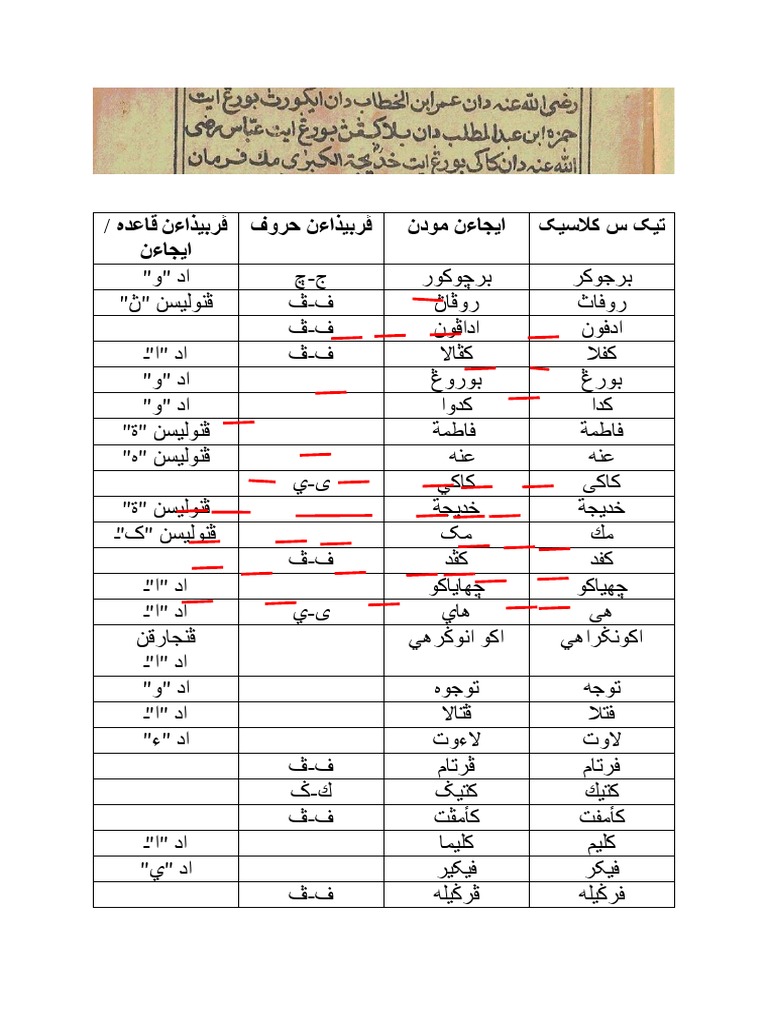 رضي الله عنه دان عمر ابن الخطاب دان ايكورت بورڠ ايت
حمزه ابن عبد المطلب دان بلاكڤن بورڠ ايت عباس رضي
الله عنه دان كاكي بورڠ ايت خديجة الكبرى مك فرمان
تيک س کلاسيک ايجاءن مودن ڤربيذاءن حروف ڤربيذاءن قاعده /
ايجاءن
برجوكر برچوكور ج-چ اد "و"
روفاث روڤاڽ ف-ڤ ڤنوليسن "ڽ"
ادفون اداڤون ف-ڤ
كفلا كڤالا ف-ڤ اد "ا"ـ
بورڠ بوروڠ اد "و"
كدا كدوا اد "و"
فاطمة فاطمة ڤنوليسن "ة"
عنه عنه ڤنوليسن "ه"
كاكى كاكي ى-ي
خديجة خديجة ڤنوليسن "ة"
مك مک ڤنوليسن "ک"ـ
كفد كڤد ف-ڤ
چهياكو چهاياكو اد "ا"ـ
هى هاي ى-ي اد "ا"ـ
اكونݢراهي اكو انوݢرهي ڤنجارقن
اد "ا"ـ
توجه توجوه اد "و"
فتلا ڤتالا اد "ا"ـ
لاوت لاءوت اد "ء"
فرتام ڤرتام ف-ڤ
كتيك كتيݢ ك-ݢ
كأمفت كأمڤت ف-ڤ
كليم كليما اد "ا"ـ
فيكر فيكير اد "ي"
فرݢيله ڤرݢيله ف-ڤ